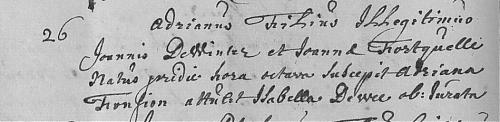 26 Adrianus Filius Illegitimus
Joannis DeWinter et Joannæ Fortquelle
Natus pridie hora octava suscepit Adriana
attulit Isabella Dewee ob: Jurata